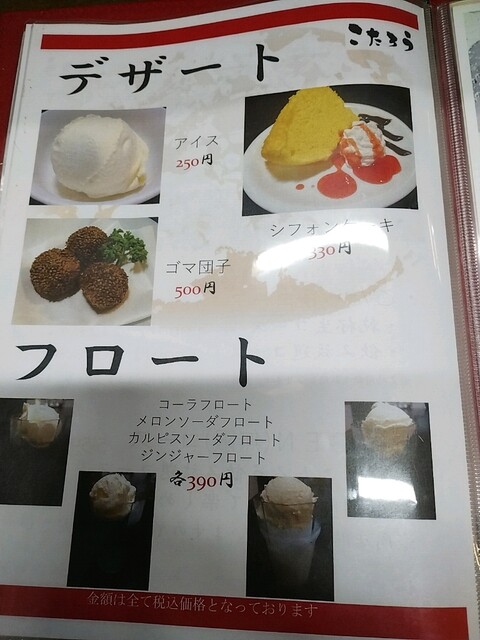 こたろう
デザート
アイス
250円
シフォンケーキ
330円
ゴマ団子
500円
フロート
コーラフロート
メロンソーダフロート
カルピスソーダフロート
ジンジャーフロート
各390円
金額は全て税込価格となっております